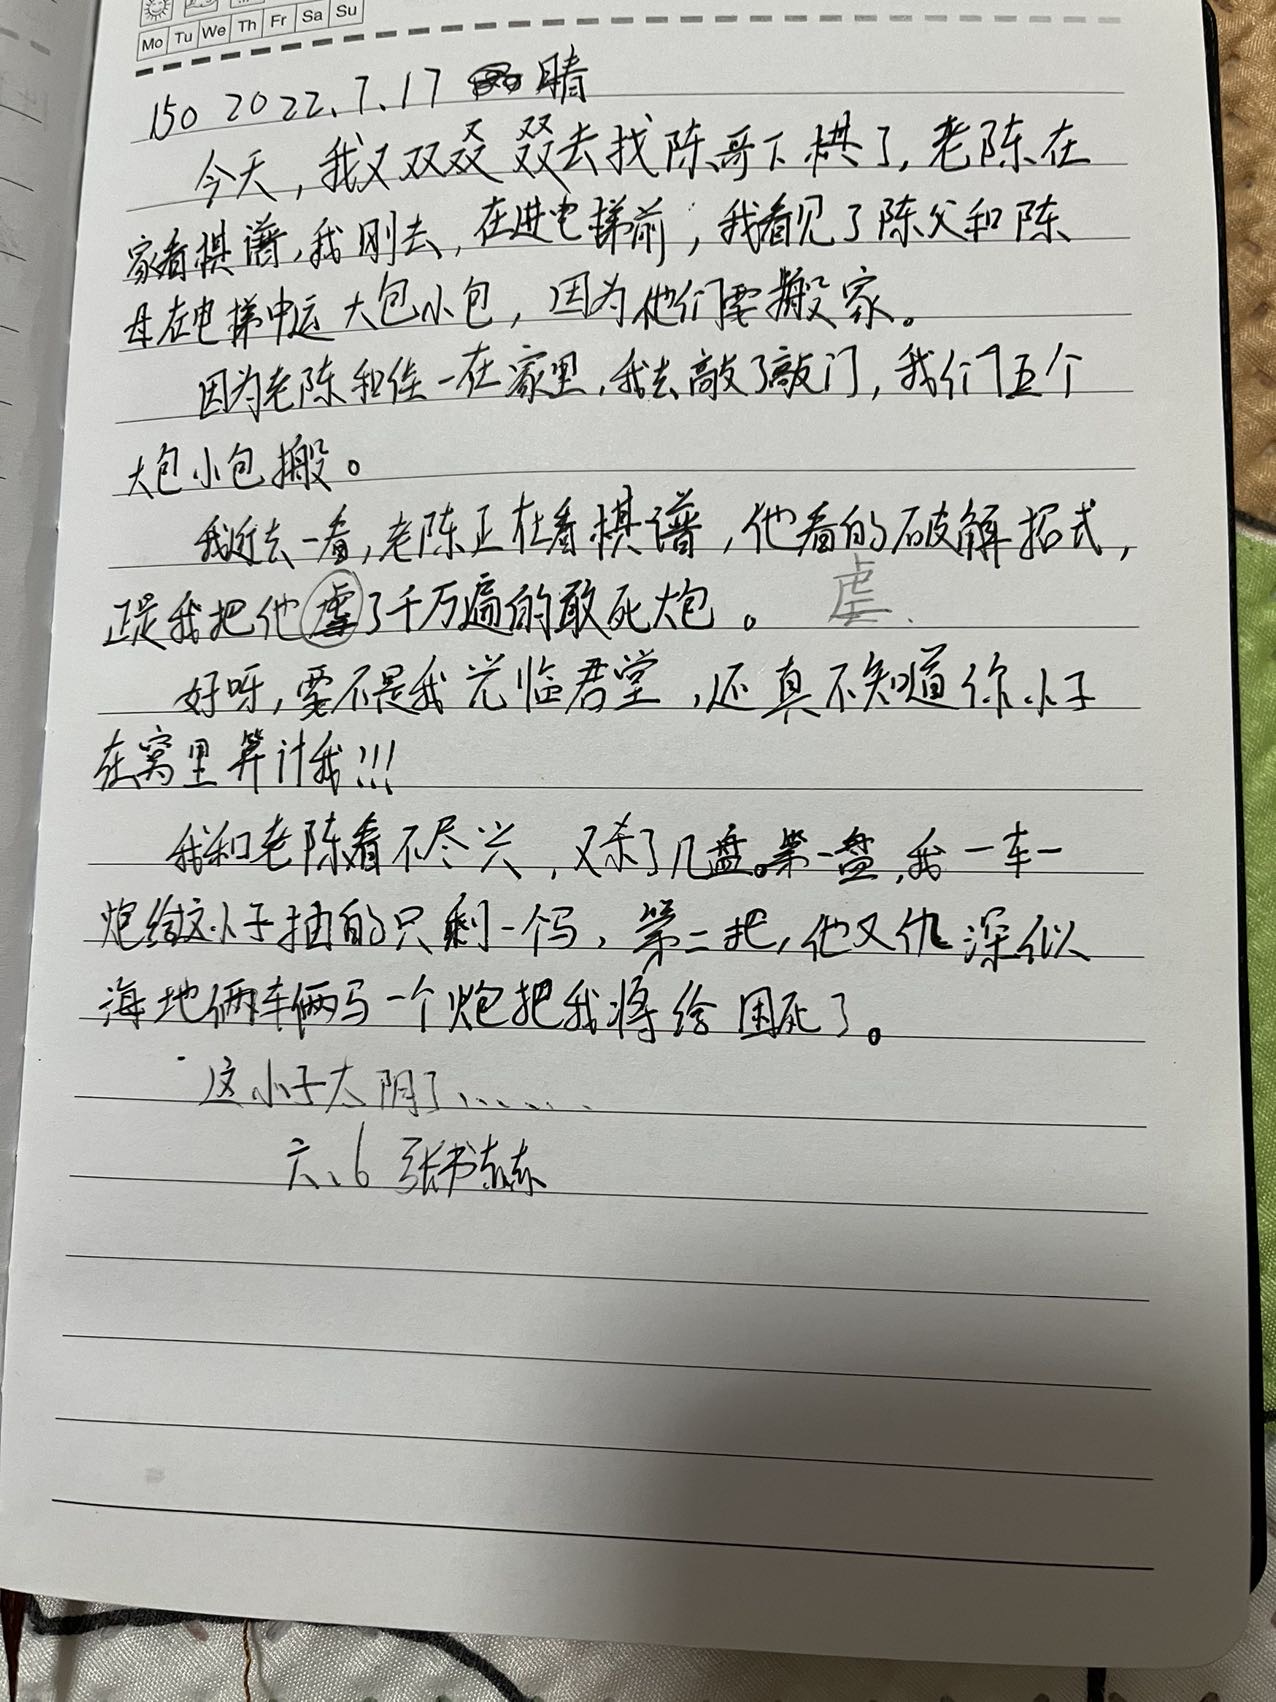 Mo Tu We Th Fr Sa Su
150 2022.7.17 晴
今天,我又双叒叕去找陈哥下棋了,老陈在
家看棋谱,我刚去,在进电梯前,我看见了陈父和陈
母在电梯中运大包小包,因为他们要搬家。
因为老陈和佳一在家里,我去敲了敲门,我们五个
大包小包搬。
我近去一看,老陈正在看棋谱,他看的破解招式,
正是我把他虐了千万遍的敢死炮。 虐
好呀,要不是我光临君堂,还真不知道你小子
在窝里算计我!!!
我和老陈看不尽兴,又杀了几盘。第一盘,我一车一
炮给这小子抽的只剩一个马,第二把,他又仇深似
海地俩车俩马一个炮把我将给困死了。
这小子太阴了......
六、6 张书